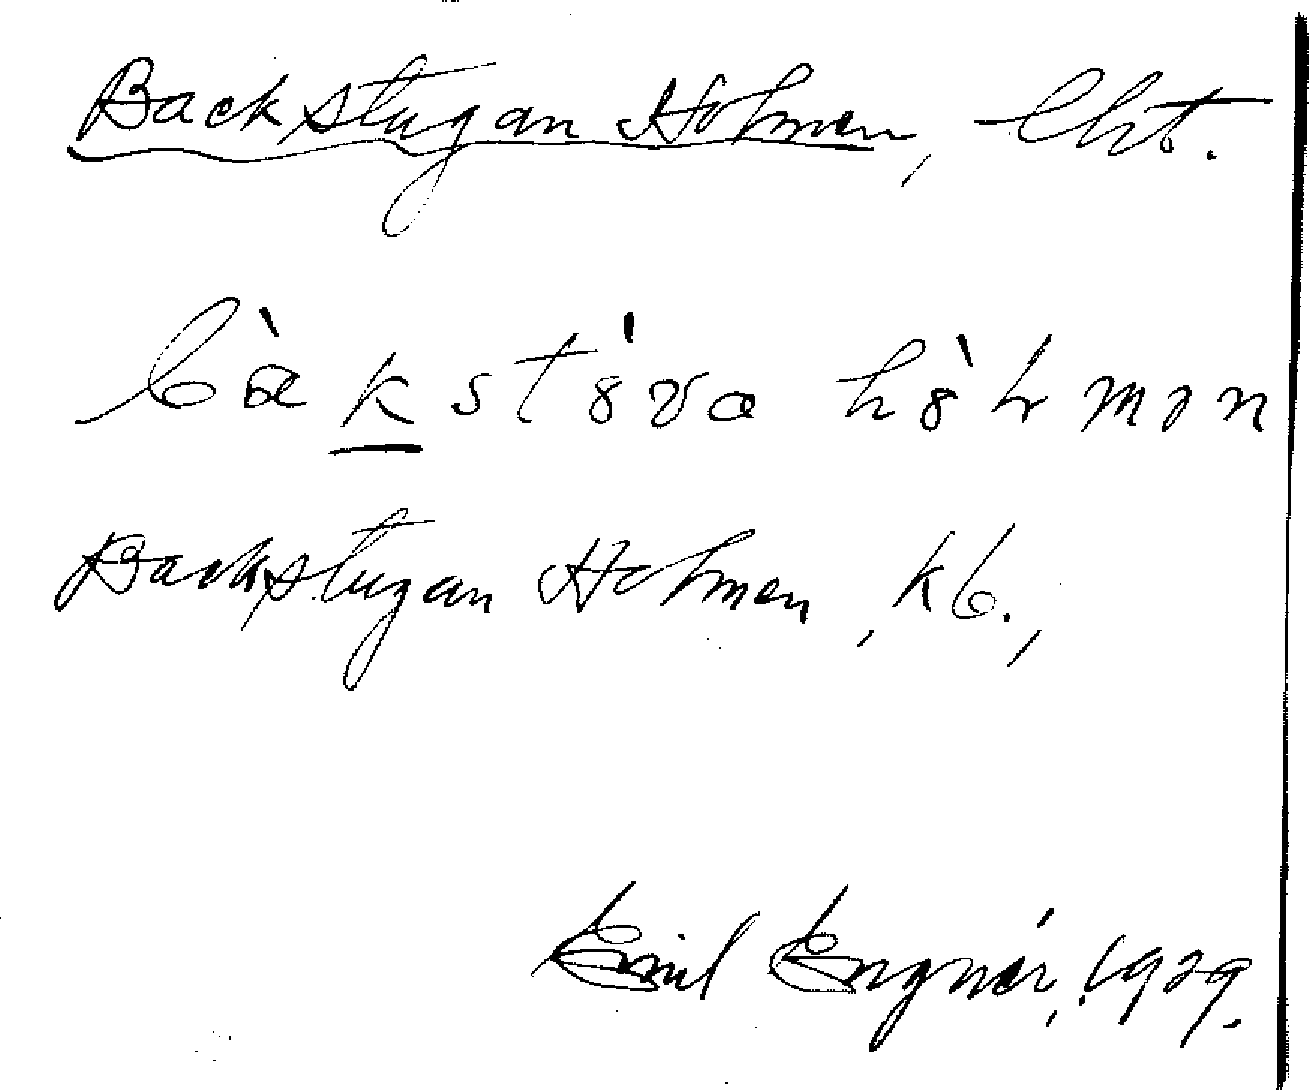 Backstugan Holmen, lht.
bàkstȯva hòlmən
Backstugan Holmen, kb.,
Emil Engnér, 1929.